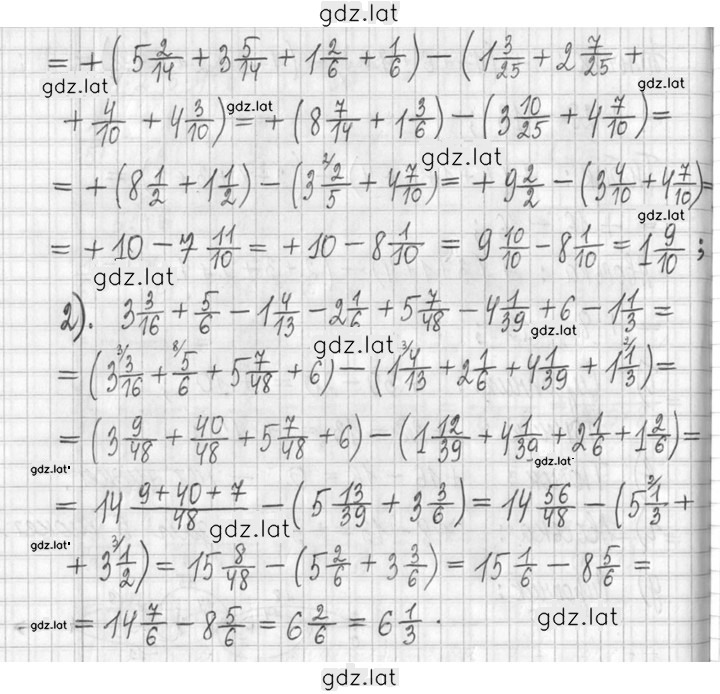 gdz.lat
= + (5 2/14 + 3 5/14 + 1 2/6 + 1/6) − (1 3/25 + 2 7/25 +
gdz.lat gdz.lat gdz.lat
+ 4/10 + 4 3/10) = + (8 7/14 + 1 3/6) − (3 10/25 + 4 7/10) =
gdz.lat
= + (8 1/2 + 1 1/2) − (3 2/ 2/5 + 4 7/10) = + 9 2/2 − (3 4/10 + 4 7/10) =
gdz.lat
= + 10 − 7 11/10 = + 10 − 8 1/10 = 9 10/10 − 8 1/10 = 1 9/10 ;
gdz.lat
2). 3 3/16 + 5/6 − 1 4/13 − 2 1/6 + 5 7/48 − 4 1/39 + 6 − 1 1/3 =
gdz.lat gdz.lat
= (3 3/ 3/16 + 8/ 5/6 + 5 7/48 + 6) − (1 3/ 4/13 + 2 1/6 + 4 1/39 + 1 2/ 1/3) =
= (3 9/48 + 40/48 + 5 7/48 + 6) − (1 12/39 + 4 1/39 + 2 1/6 + 1 2/6) =
gdz.lat gdz.lat
= 14 (9 + 40 + 7)/48 − (5 13/39 + 3 3/6) = 14 56/48 − (5 2/ 1/3 +
gdz.lat gdz.lat
+ 3 3/ 1/2) = 15 8/48 − (5 2/6 + 3 3/6) = 15 1/6 − 8 5/6 =
gdz.lat gdz.lat
= 14 7/6 − 8 5/6 = 6 2/6 = 6 1/3 .
gdz.lat